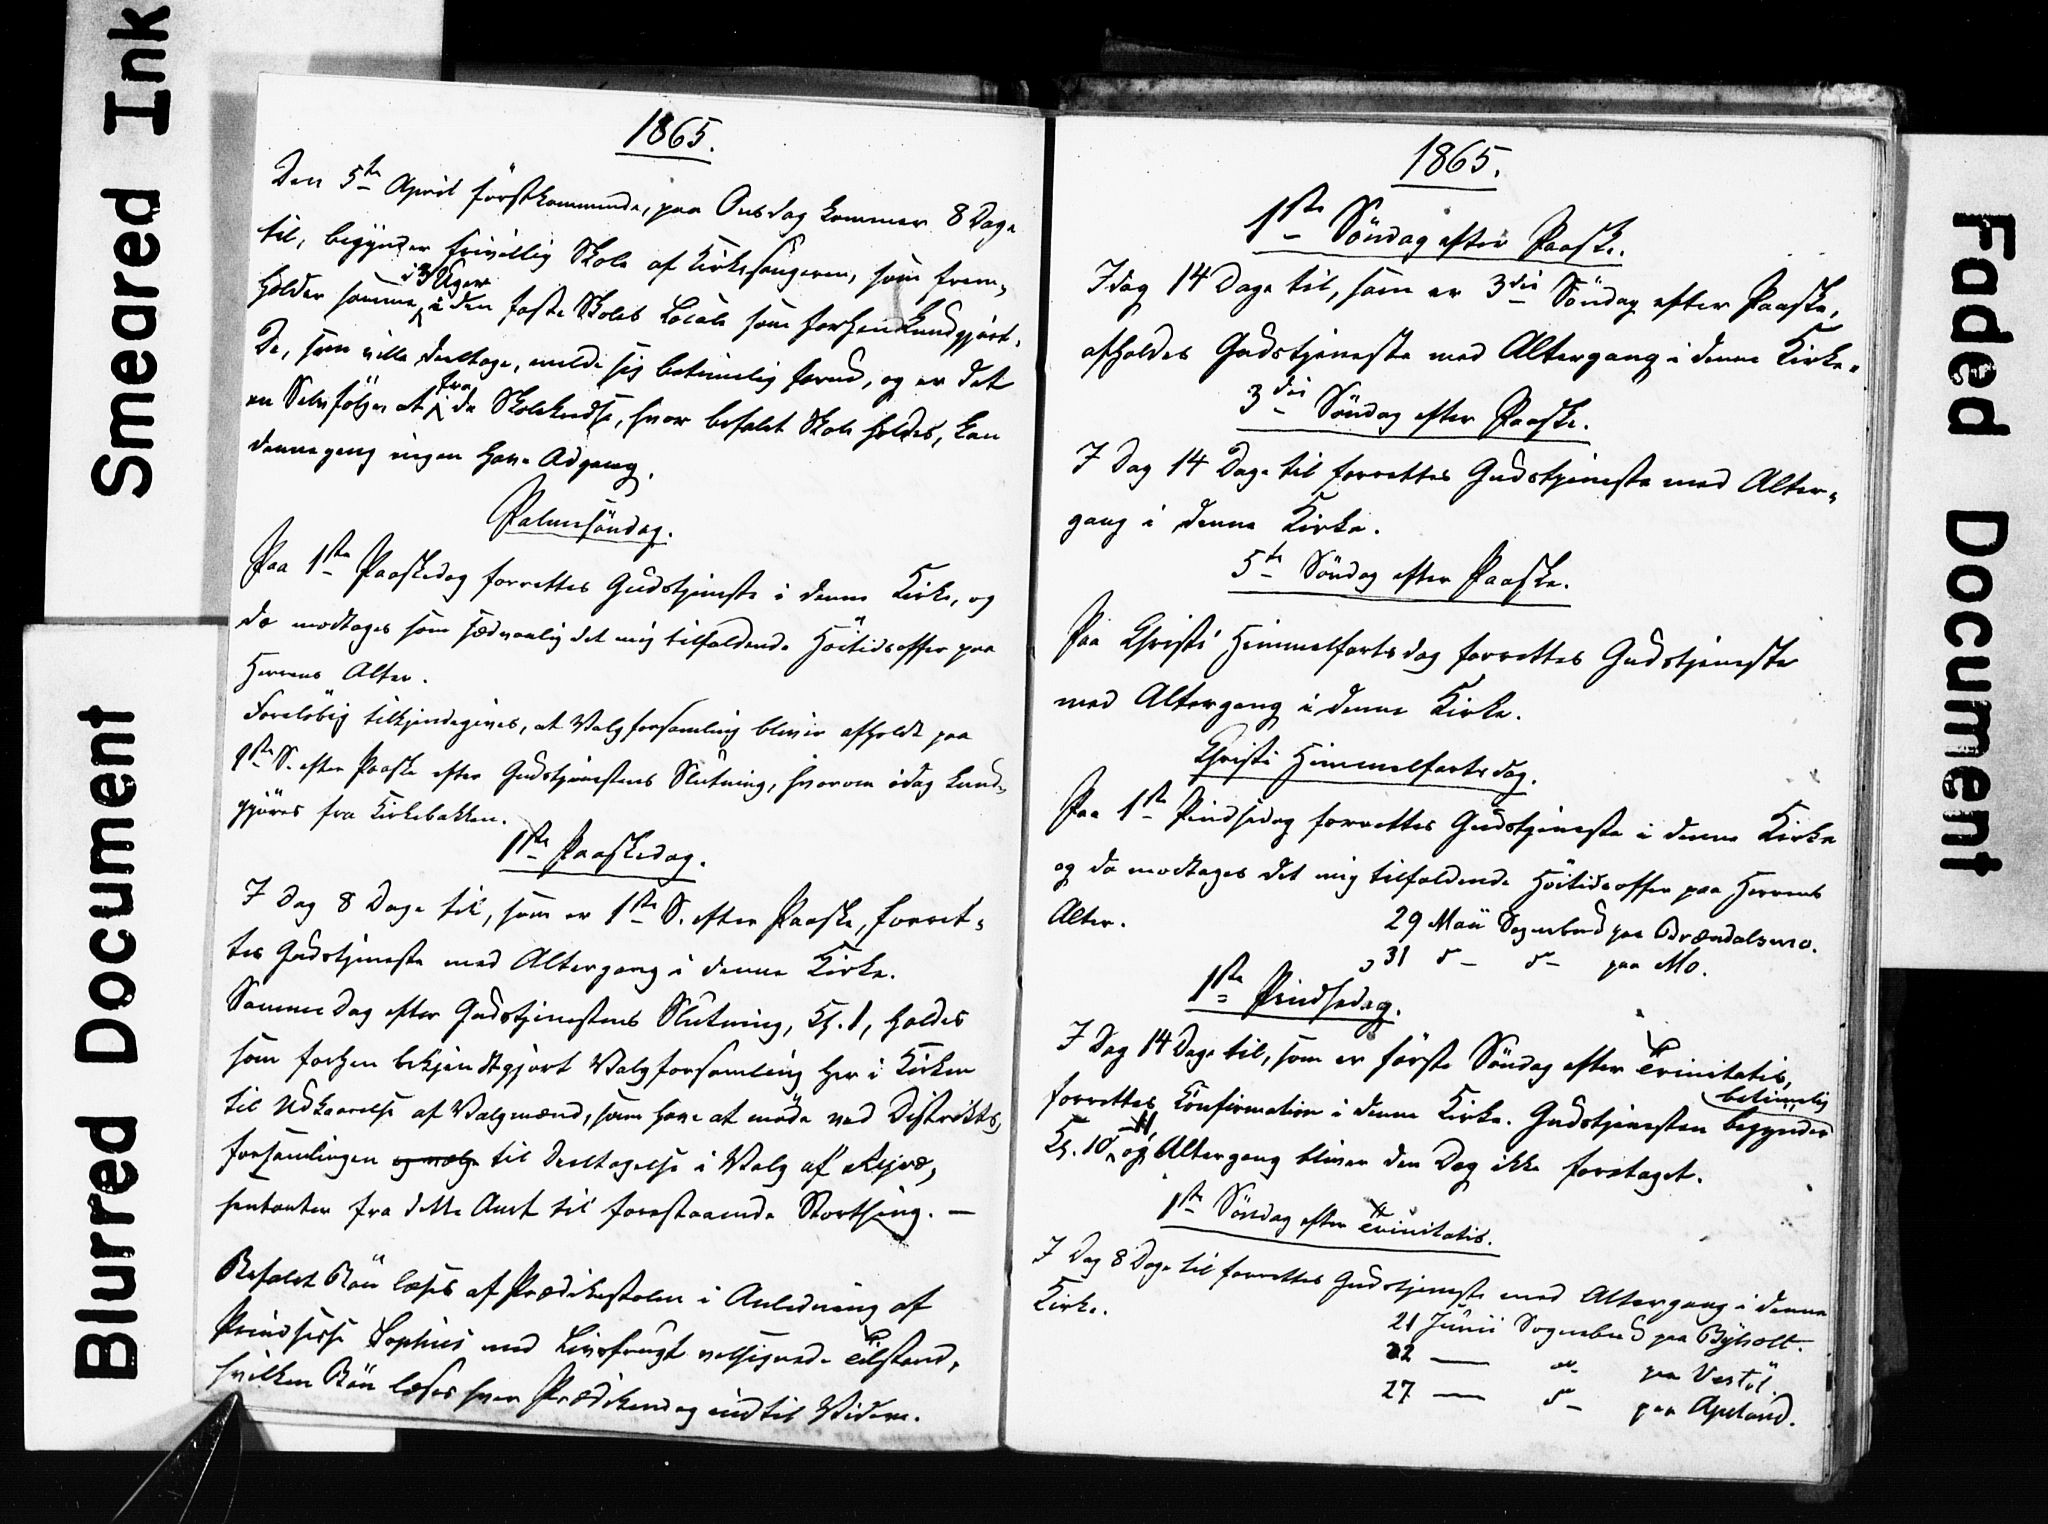 Smeared Ink
Blurred Document
1865.
Den 5te April førstkommende, paa Onsdag kommer 8 Dage
til, begynder frivillig Skole af Kirkesangeren, som frem-
holder samme i 3 Uger i den faste Skoles Locale som forhen kundgjort.
De, som ville deeltage, melde sig betimelig forud, og er det
en Selvfølge at fra de Skolekredse, hvor befalet Skole holdes, kan
dennegang ingen have Adgang.
Palmesöndag.
Paa 1ste Paaskedag forrettes Gudstjeneste i denne Kirke, og
da modtages som sædvanlig det mig tilfaldende Höitidsoffer paa
Herrens Alter.
Foreløbig tilkjendegives, at Valgforsamling bliver afholdt paa
1ste S. efter Paaske efter Gudstjenestens Slutning, hvorom idag kund-
gjøres fra Kirkebakken.
1ste Paaskedag.
I Dag 8 Dage til, som er 1ste S. efter Paaske, forret-
tes Gudstjeneste med Altergang i denne Kirke.
Samme Dag efter Gudstjenestens Slutning, Kl. 1, holdes
som forhen bekjendtgjort Valgforsamling her i Kirken
til Udkaarelse af Valgmænd, som have at møde ved Distrikts-
forsamlingen og vælge til Deeltagelse i Valg af Repræ-
sentanter fra dette Amt til forestaaende Storthing. —
Befalet Bön læses af Prædikestolen i Anledning af
Prindsesse Sophies med Livsfrugt velsignede Tilstand,
hvilken Bön læses hver Prædikendag indtil Videre.
1865.
1ste Söndag efter Paaske.
I dag 14 Dage til, som er 3die Söndag efter Paaske,
afholdes Gudstjeneste med Altergang i denne Kirke.
3die Söndag efter Paaske.
I Dag 14 Dage til forrettes Gudstjeneste med Alter-
gang i denne Kirke.
5te Söndag efter Paaske.
Paa Christi Himmelfartsdag forrettes Gudstjeneste
med Altergang i denne Kirke.
Christi Himmelfartsdag.
Paa 1ste Pindsedag forrettes Gudstjeneste i denne Kirke
og da modtages det mig tilfaldende Höitidsoffer paa Herrens
Alter.
29 Maii Sognebud paa Brændalsmo.
31 d— d— paa Mo.
1ste Pindsedag.
I Dag 14 Dage til, som er förste Söndag efter Trinitatis,
forrettes Confirmation i denne Kirke. Gudstjenesten begynder betimelig
Kl. 10, og Altergang bliver den Dag ikke foretaget.
1ste Söndag efter Trinitatis.
I Dag 8 Dage til forrettes Gudstjeneste med Altergang i denne
Kirke.
21 Junii Sognebud paa Byholt.
22 — d— paa Vestöl.
27 — d— paa Apeland.
Faded Document